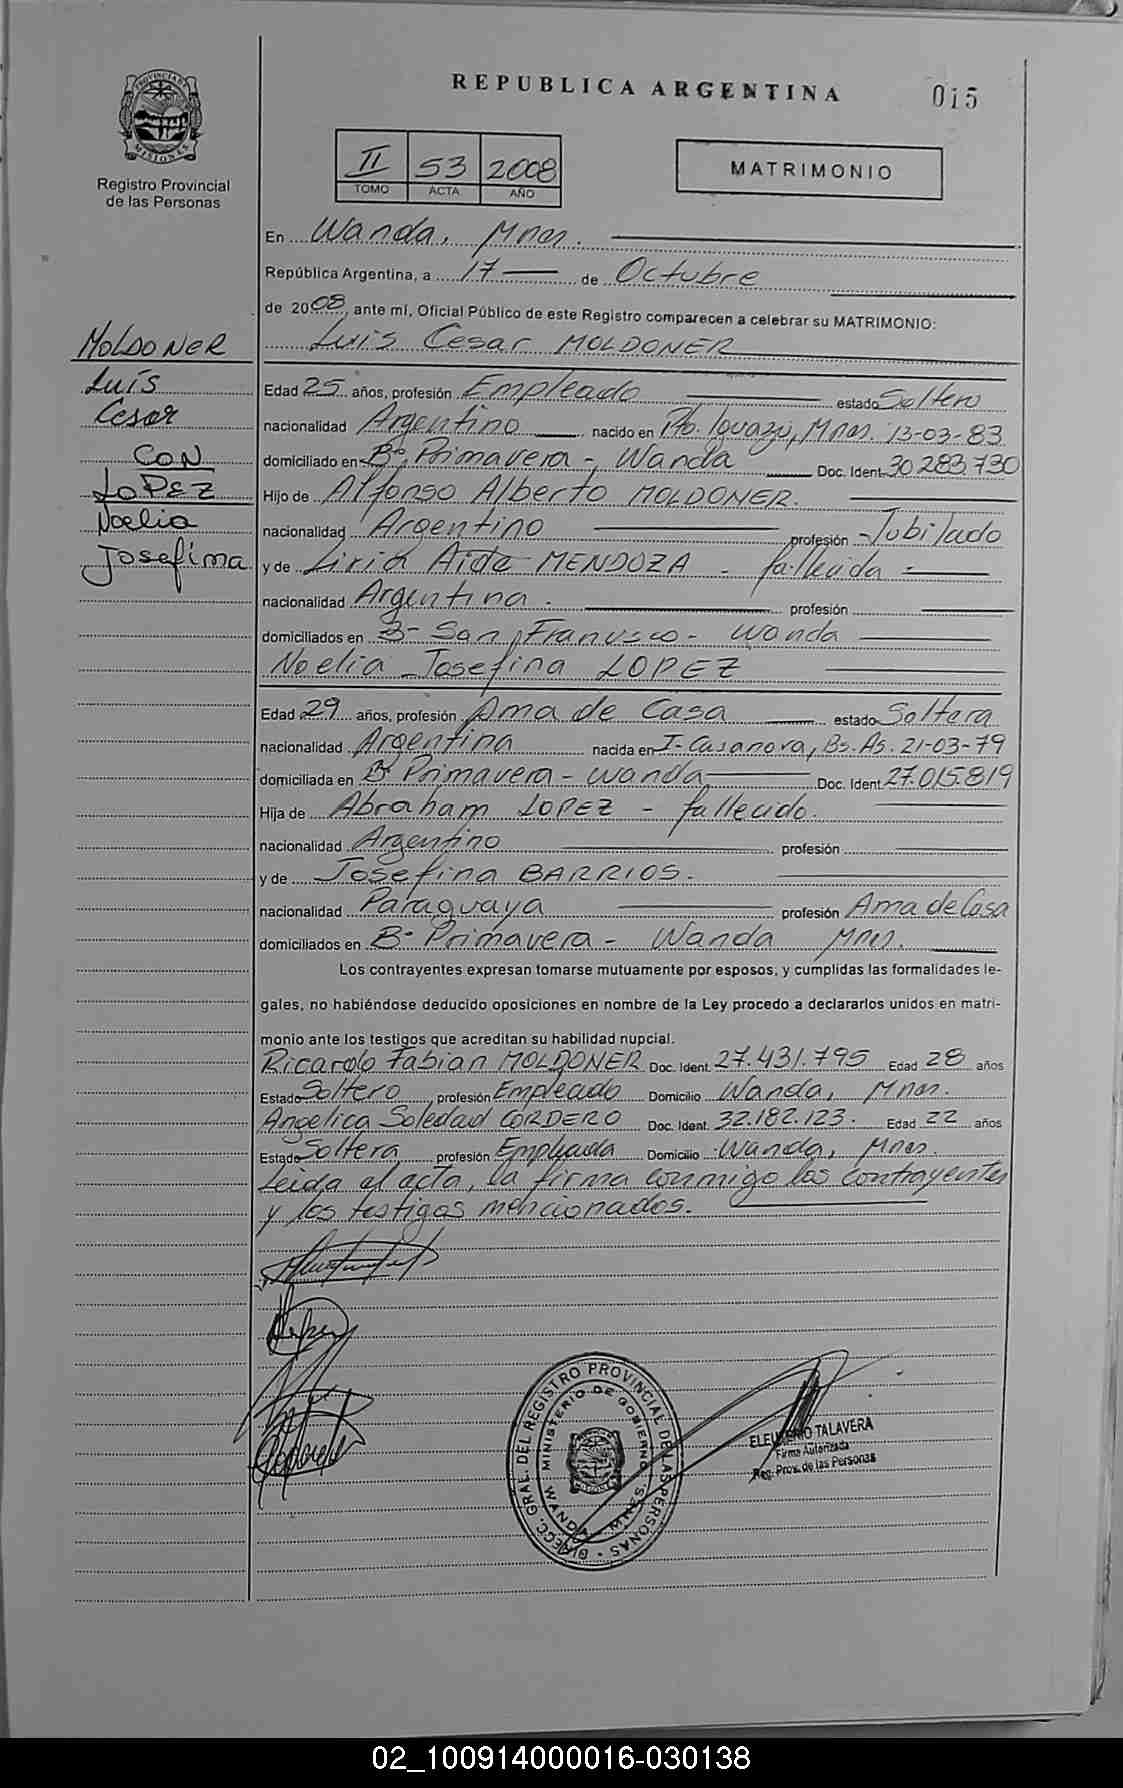 REPUBLICA ARGENTINA
015
PROVINCIA DE MISIONES
Registro Provincial
de las Personas
II 53 2008
TOMO ACTA AÑO
MATRIMONIO
En Wanda, Mnes.
República Argentina, a 17 de Octubre
de 2008, ante mí, Oficial Público de este Registro comparecen a celebrar su MATRIMONIO:
Luis Cesar MOLDONER
MOLDONER
Luís
Cesar
CON
LOPEZ
Noelia
Josefina
Edad 25 años, profesión Empleado estado Soltero
nacionalidad Argentino nacido en Pto. Iguazú, Mnes. 13-03-83
domiciliado en Bº Primavera - Wanda Doc. Ident. 30.283.730
Hijo de Alfonso Alberto MOLDONER.
nacionalidad Argentino profesión Jubilado
y de Liria Aide MENDOZA - fallecida -
nacionalidad Argentina. profesión
domiciliados en Bº San Francisco - Wanda
Noelia Josefina LOPEZ
Edad 29 años, profesión Ama de Casa estado Soltera
nacionalidad Argentina nacida en I. Casanova, Bs. As. 21-03-79
domiciliada en Bº Primavera - Wanda Doc. Ident. 27.015.819
Hija de Abraham LOPEZ - fallecido.
nacionalidad Argentino profesión
y de Josefina BARRIOS.
nacionalidad Paraguaya profesión Ama de Casa
domiciliados en Bº Primavera - Wanda Mnes.
Los contrayentes expresan tomarse mutuamente por esposos, y cumplidas las formalidades le-
gales, no habiéndose deducido oposiciones en nombre de la Ley procedo a declararlos unidos en matri-
monio ante los testigos que acreditan su habilidad nupcial.
Ricardo Fabian MOLDONER Doc. Ident. 27.431.795 Edad 28 años
Estado Soltero profesión Empleado Domicilio Wanda, Mnes.
Angelica Soledad CORDERO Doc. Ident. 32.182.123. Edad 22 años
Estado Soltera profesión Empleada Domicilio Wanda, Mnes.
Leida el acta, la firma conmigo los contrayentes
y los testigos mencionados.
DIRECC. GRAL. DEL REGISTRO PROVINCIAL DE LAS PERSONAS
MINISTERIO DE GOBIERNO
WANDA
ELEUTERIO TALAVERA
Firma Autorizada
Reg. Prov. de las Personas
02_100914000016-030138